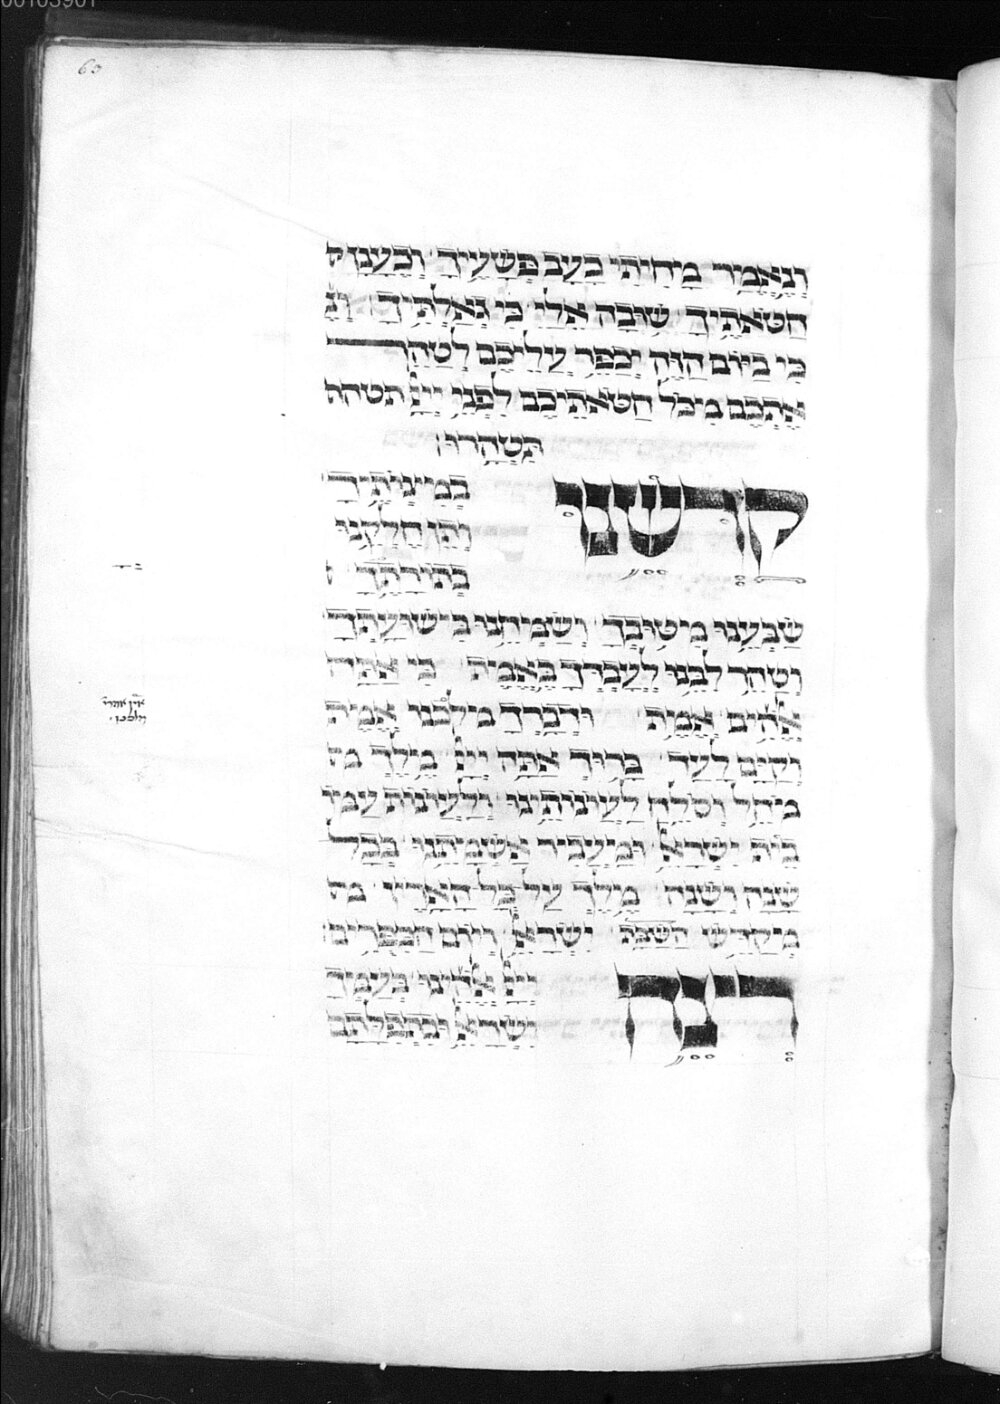 00103901
63
וְנֶאֱמַר מָחִיתִי כָעָב פְּשָׁעֶיךָ וְכֶעָנָן
חַטֹּאתֶיךָ שׁוּבָה אֵלַי כִּי גְאַלְתִּיךָ וְנֶ
כִּי בַיּוֹם הַזֶּה יְכַפֵּר עֲלֵיכֶם לְטַהֵר
אֶתְכֶם מִכֹּל חַטֹּאתֵיכֶם לִפְנֵי יְיָ תטהר
תִּטְהָרוּ
קַדְּשֵׁנוּ
בְּמִצְוֹתֶיךָ
וְתֵן חֶלְקֵנוּ
בְּתוֹרָתֶךָ
שַׂבְּעֵנוּ מִטּוּבָךְ וְשַׂמְּחֵנוּ בִּישׁוּעָתָךְ
וְטַהֵר לִבֵּנוּ לְעָבְדְּךָ בֶּאֱמֶת כִּי אַתָּה
אֱלֹהִים אֱמֶת וּדְבָרְךָ מַלְכֵּנוּ אֱמֶת
וְקַיָּם לָעַד בָּרוּךְ אַתָּה יְיָ מֶלֶךְ מ
מוֹחֵל וְסוֹלֵחַ לַעֲוֹנוֹתֵינוּ וְלַעֲוֹנוֹת עַמּוֹ
בֵּית יִשְׂרָאֵל וּמַעֲבִיר אַשְׁמָתֵנוּ בְּכָל
שָׁנָה וְשָׁנָה מֶלֶךְ עַל כָּל הָאָרֶץ מק
מְקַדֵּשׁ הַשַּׁבָּת יִשְׂרָאֵל וְיוֹם הַכִּפֻּרִים
רְצֵה
יְיָ אֱלֹהֵינוּ בְּעַמְּךָ
יִשְׂרָאֵל וּבִתְפִלָּתָם